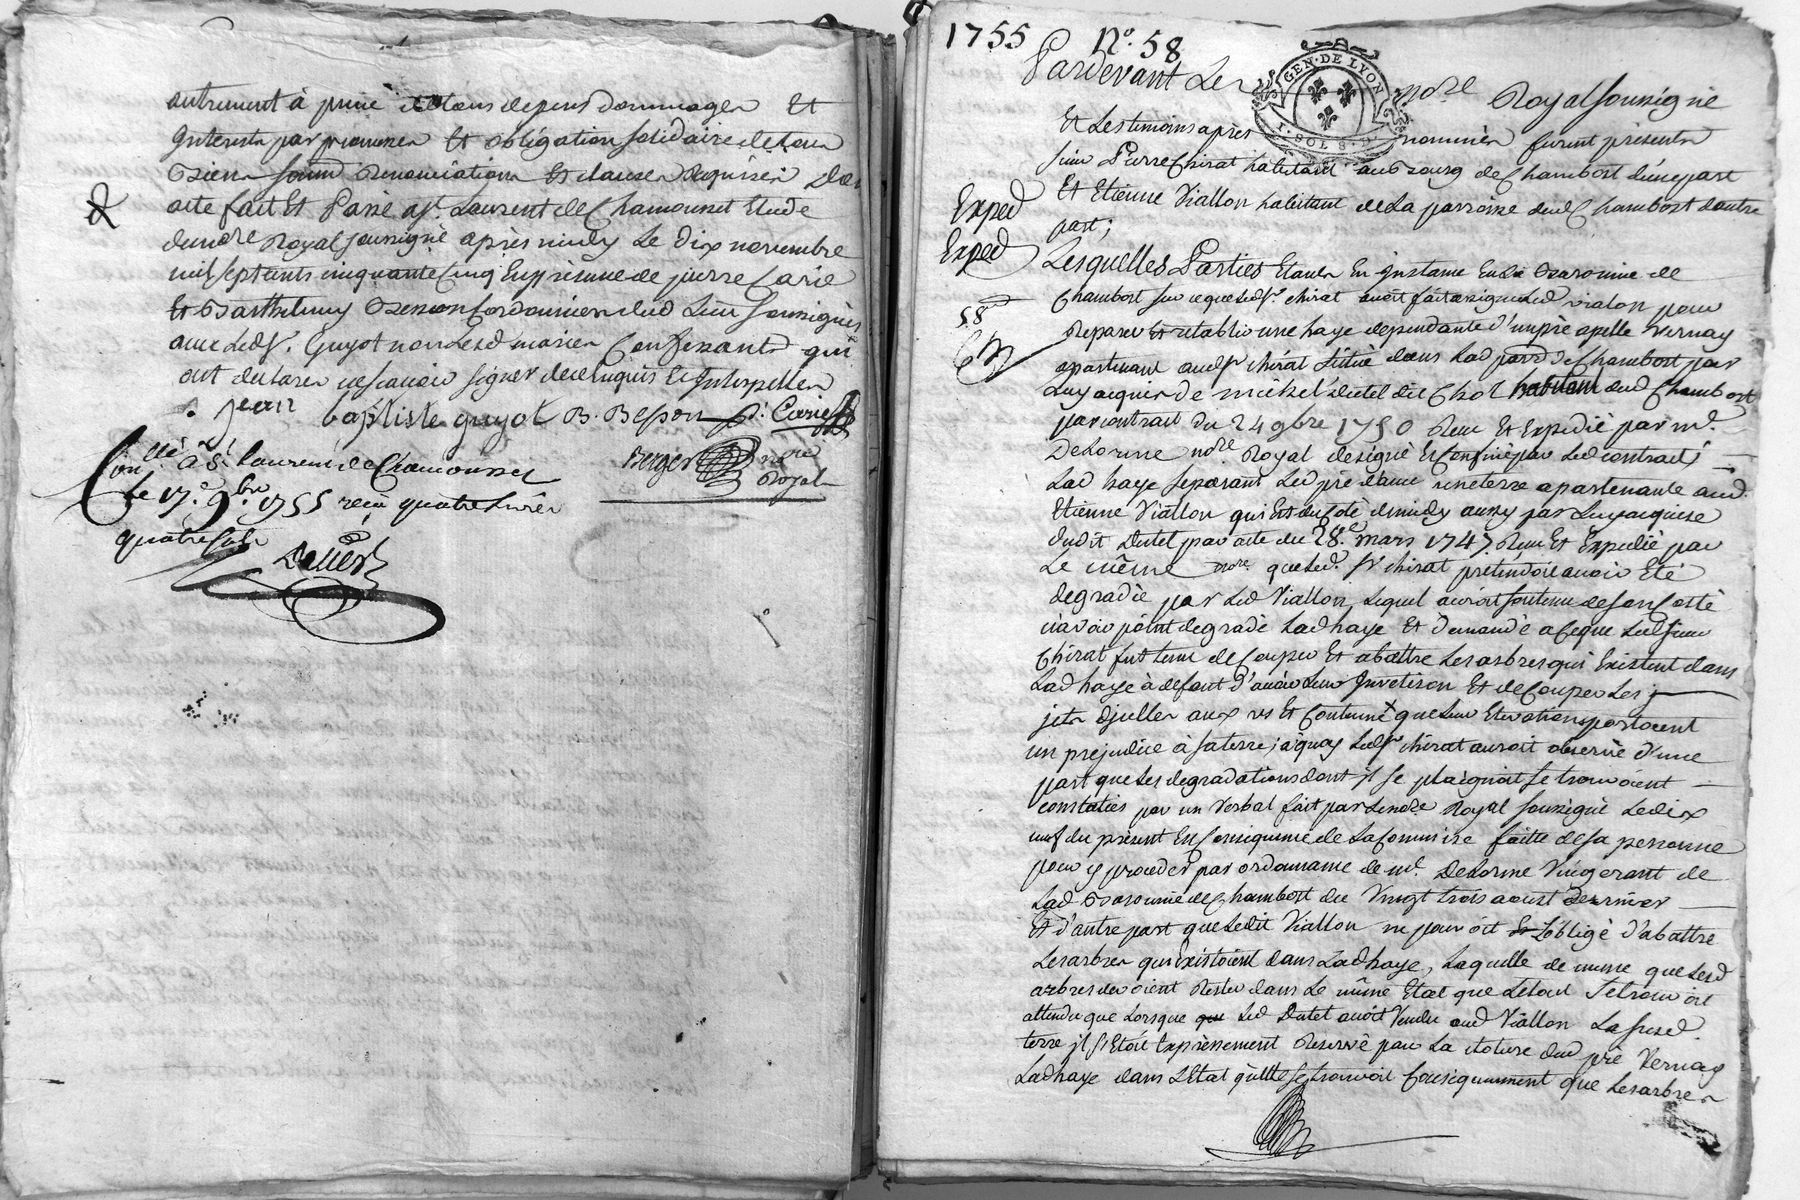 autrement à peine de tous depens dommages Et
Interests par promesse Et obligation solidaire de tous
Biens soum Renonciations Et clauses Requises Dont
acte fait Et Passé a St. Laurent de Chamousset Etude
du nore Royal soussigné après midy Le dix novembre
mil sept cents cinquante Cinq En presence de pierre Carie
Et Barthelemy Besson Cordonnier dud Lieu soussignés
avec Led Sr. Guyot non Lesd mariés Confessants qui
ont declaré ne scavoir signer de ce Enquis Et Interpellés
Jean baptiste guyot B. Besson p. Carie
Berger nore
Royal
Conllé à St. Laurent de Chamousset
Le 17e. 9bre 1755 recu quatre livres
quatre sols
1755 No. 58
GEN. DE LYON
Pardevant Le nore Royal soussigné
Et Les temoins après nommés furent présents
sieur Pierre Chirat habitant au Bourg de Chambost d'une part
Et Etienne Viallon habitant de La parroisse dud Chambost d'autre
part;
Exped
Exped
58
Lesquelles Parties Etants En Instance En La Baronnie de
Chambost sur ce que Led Sr chirat avoit fait assigner Led vialon pour
Reparer Et retablir une haye dependante d'un pré apellé Vernay
apartenant aud Sr chirat Situé dans Lad parre de Chambost par
Luy acquis de michel dutel du Chol habitant dud Chambost
par contrat du 24 9bre 1750 Recu Et Expedié par me.
Delorme nore Royal designé Et Confiné par Led contrat;
Lad haye separant Led pré d'avec une terre apartenante aud.
Etienne Viallon qui Est du Coté de midy aussy par Luy acquise
dudit Dutel par acte du 28e mars 1747. Recu Et Expedié par
Le même nore. que Led. Sr chirat pretendoit avoir Eté
degradée par Led Viallon, Lequel auroit soutenu de son Costé
n'avoir point degradé Lad haye Et demandé a Ce que Led Sieur
Chirat fut tenu de Couper Et abattre Les arbres qui Existent dans
Lad haye à defaut d'avoir Leur Investison Et de Couper Les
jets d'juelles aux us Et Coutume que Leur Elevation portoient
un prejudice à sa terre; à quoy Led Sr chirat auroit observé d'une
part que Les degradations dont jl se plaignoit se trouvoient
constatées par un Verbal fait par Le nore Royal soussigné Le dix
neuf du présent En Consequence de La Commise faitte de sa personne
pour y proceder par ordonnance de me. Delorme Vicegerant de
Lad Baronnie de Chambost du Vingt trois aoust dernier
Et d'autre part que Ledit Viallon ne pouvoit L'obligé d'abattre
Les arbres qui Existoient dans Lad haye, Laquelle de meme que Lesd
arbres devoient Rester dans Le même Etat que Le tout Se trouvoit
attendu que Lorsque Led Dutel avoit Vendu aud Viallon La susd.
terre jl s'Etoit Expressement Reservé pour La cloture dud pré Vernay
Lad haye dans L'Etat qu'elle se trouvoit Consequemment que Les arbres